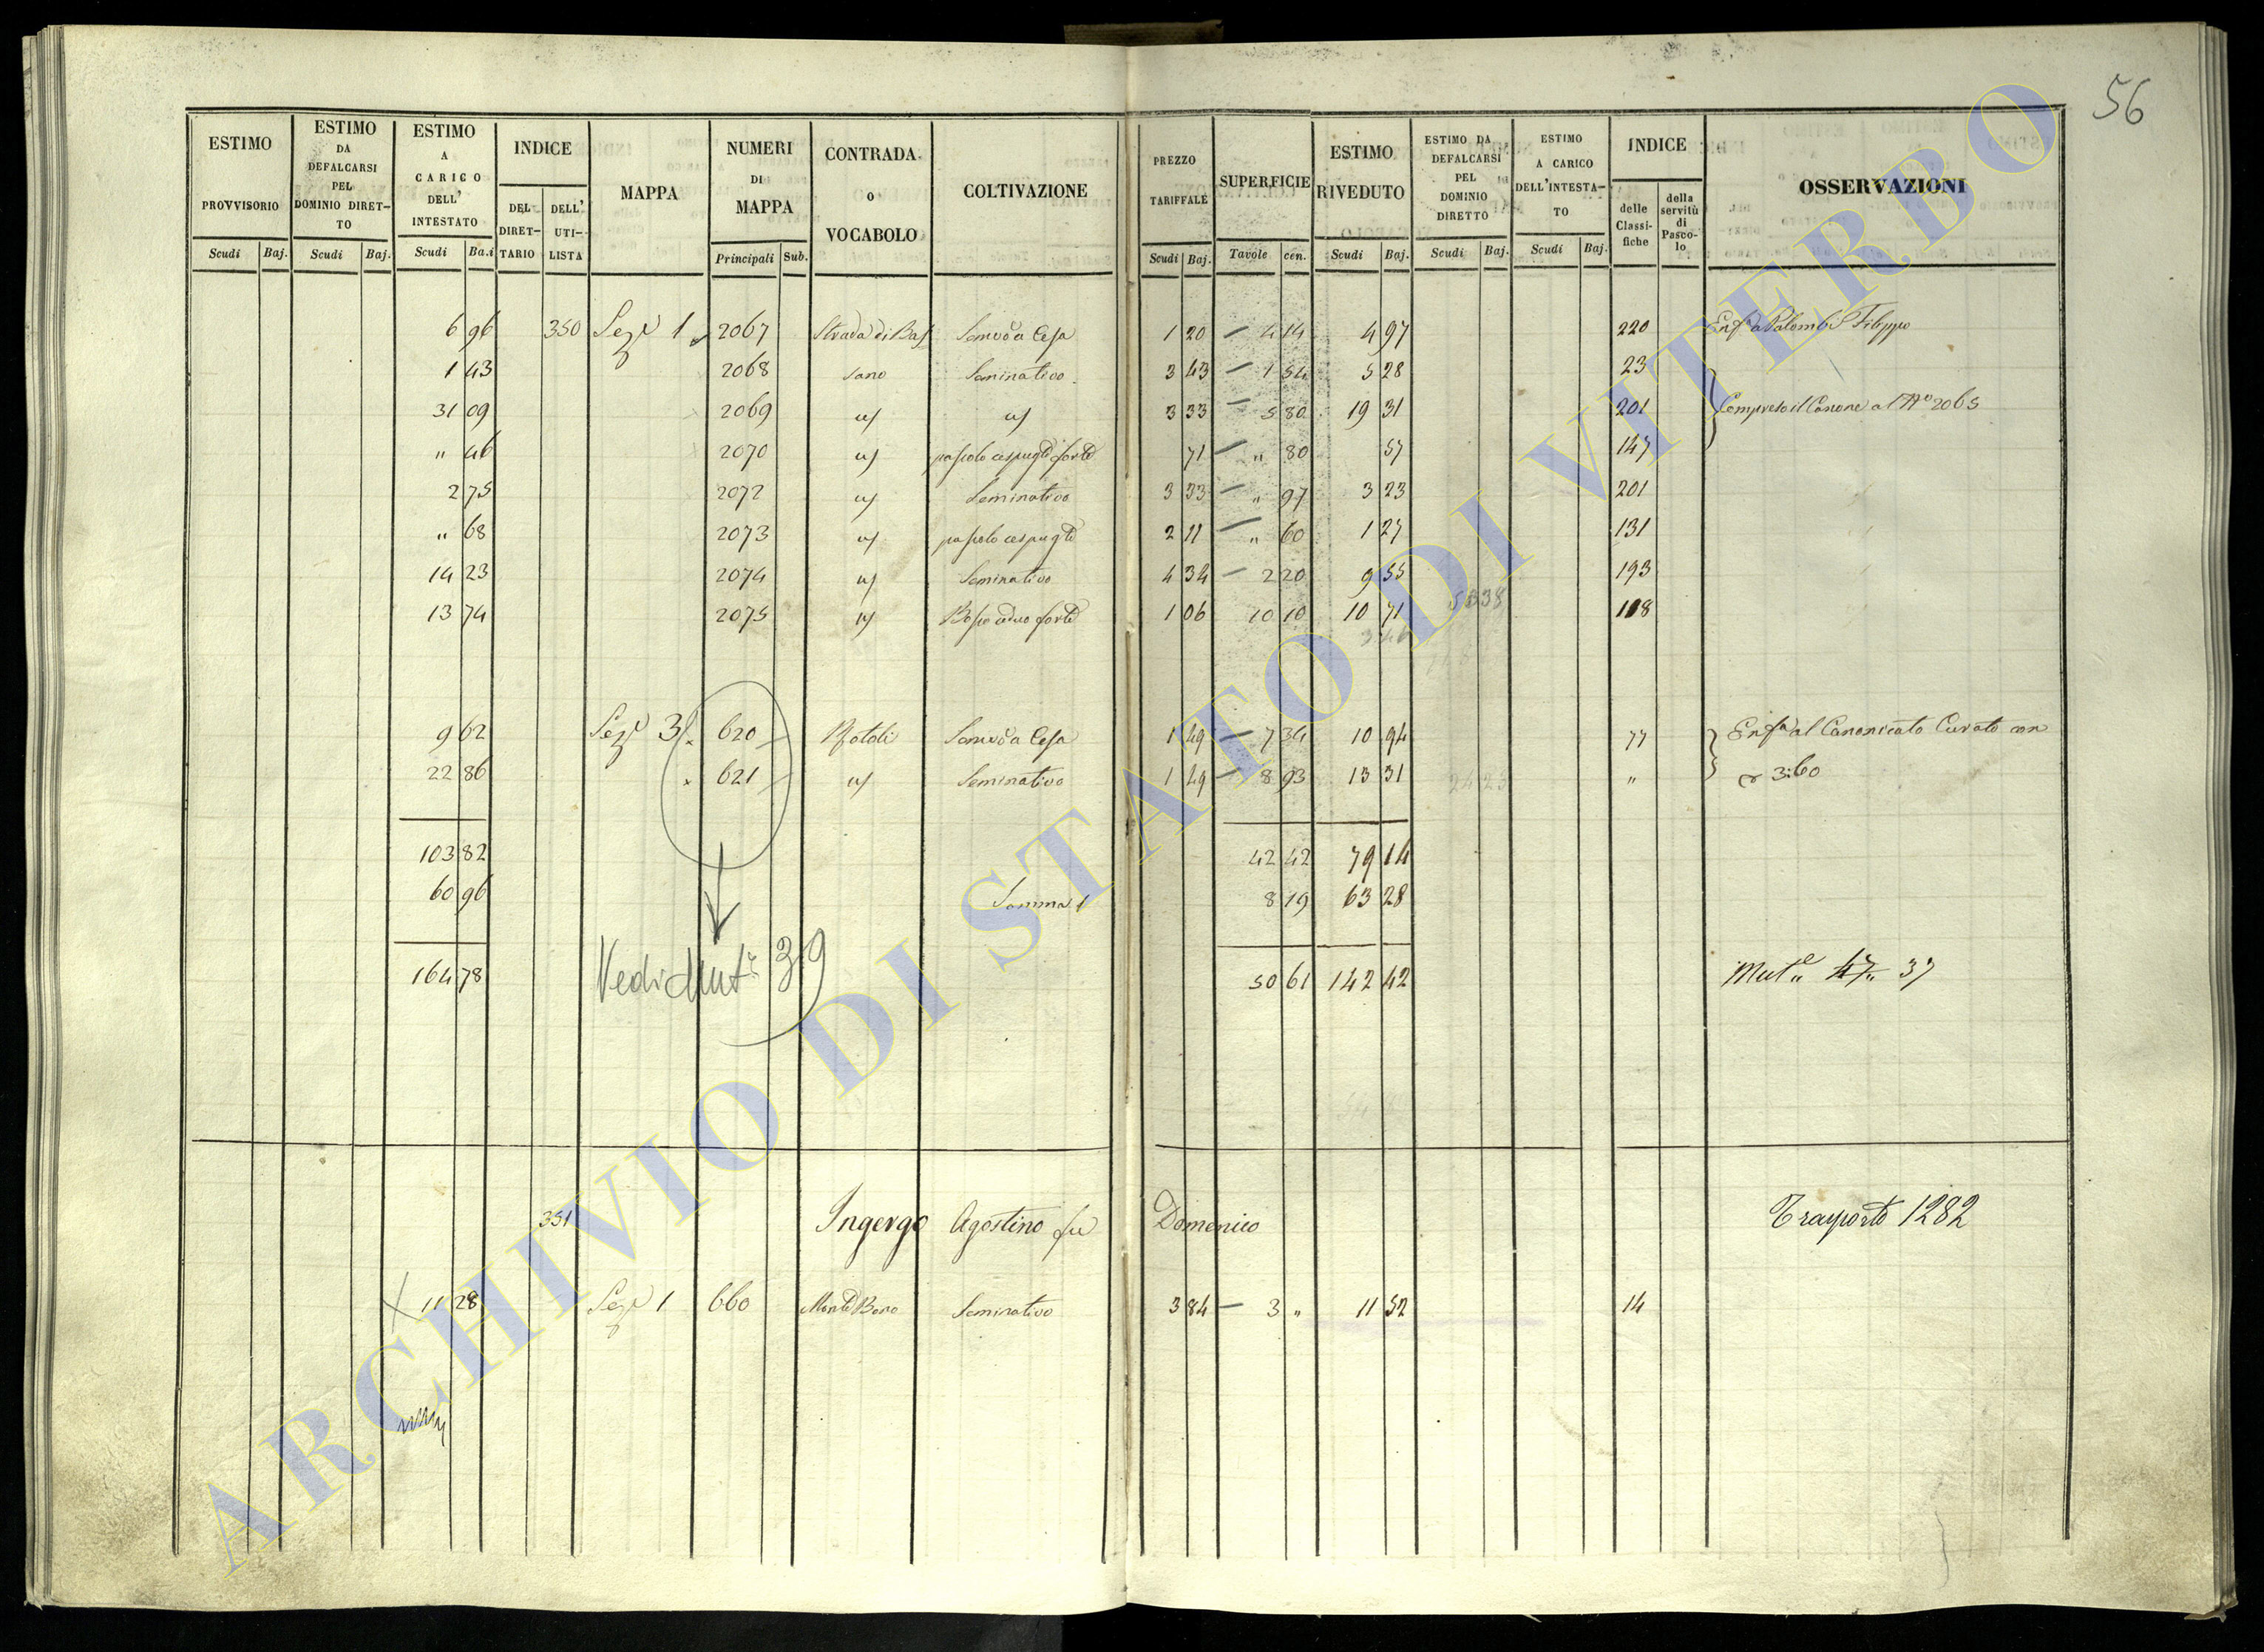 56
ESTIMO PROVVISORIO
ESTIMO DA DEFALCARSI PEL DOMINIO DIRETTO
ESTIMO A CARICO DELL' INTESTATO
INDICE
DEL DIRETTARIO DELL' UTILISTA
MAPPA
NUMERI DI MAPPA
CONTRADA o VOCABOLO
COLTIVAZIONE
PREZZO TARIFFALE
SUPERFICIE
ESTIMO RIVEDUTO
ESTIMO DA DEFALCARSI PEL DOMINIO DIRETTO
ESTIMO A CARICO DELL'INTESTATO
INDICE
delle Classifiche della servitù di Pascolo
OSSERVAZIONI
Scudi Baj. Scudi Baj. Scudi Ba.i Principali Sub. Scudi Baj. Tavole cen. Scudi Baj. Scudi Baj. Scudi Baj.
6 96 350 Sez.e 1 2067 Strada di Bas Semvo a Cesa 1 20 4 14 4 97 220 Enfa a Palombi Filippo
1 43 2068 sano Seminativo 3 43 1 54 5 28 23
31 09 2069 " " 3 33 5 80 19 31 201 Compreso il Canone al No 2065
" 46 2070 " pascolo cespugto forte 71 " 80 57 147
2 75 2072 " Seminativo 3 33 " 97 3 23 201
" 68 2073 " pascolo cespugto 2 11 " 60 1 27 131
14 23 2074 " Seminativo 4 34 2 20 9 55 193
13 74 2075 " Bosco ceduo forte 1 06 10 10 10 71 118
9 62 Sez.e 3 620 Semvo a Cesa 1 49 7 34 10 94 77 Enfa al Canonicato Curato con
22 86 621 " Seminativo 1 49 8 93 13 31 " 3:60
103 82 42 42 79 14
60 96 Somma 8 19 63 28
164 78 Vedi Mut 39 50 61 142 42 Mut.e 47 37
351 Ingergo Agostino fu Domenico Trasporto 1282
11 28 Sez.e 1 660 Monte Bono Seminativo 3 84 3 " 11 52 14
ARCHIVIO DI STATO DI VITERBO